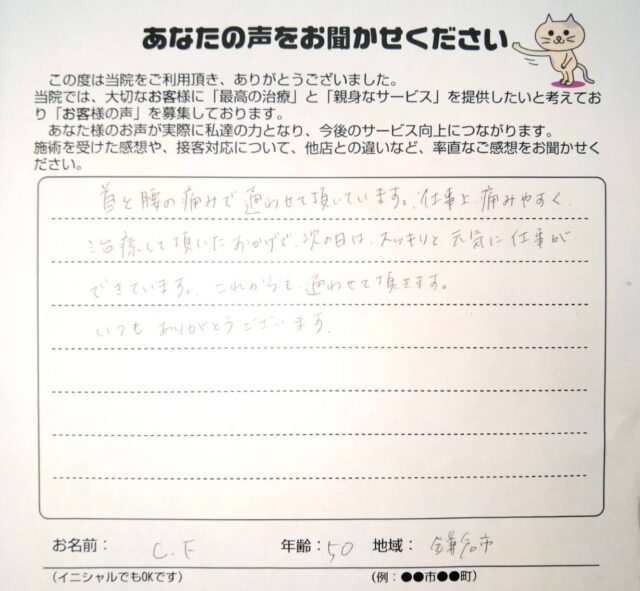 あなたの声をお聞かせください
この度は当院をご利用頂き、ありがとうございました。
当院では、大切なお客様に「最高の治療」と「親身なサービス」を提供したいと考えてお
り「お客様の声」を募集しております。
あなた様のお声が実際に私達の力となり、今後のサービス向上につながります。
施術を受けた感想や、接客対応について、他店との違いなど、率直なご感想をお聞かせく
ださい。
首と腰の痛みで通わせて頂いています。仕事上、痛みやすく
治療して頂いたおかげで、次の日は、スッキリと元気に仕事が
できています。これからも通わせて頂きます。
いつもありがとうございます。
お名前： C.F 年齢：50 地域： 鎌倉市
（イニシャルでもOKです） （例：●●市●●町）